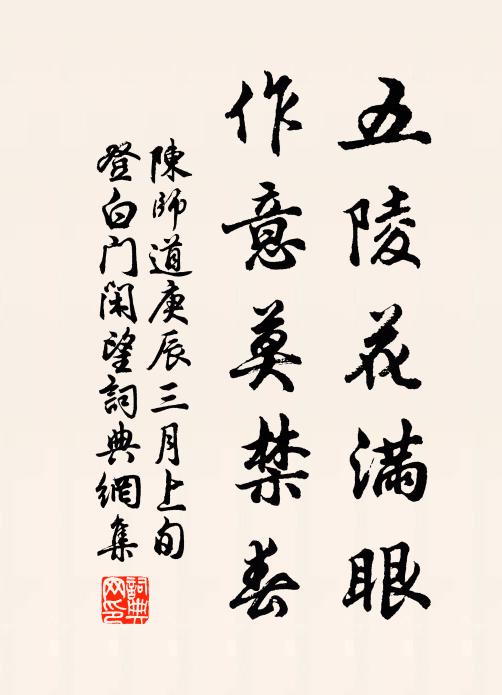 五陵花滿眼
作意莫禁春
陳師道庚辰三月上旬
登白門閑望詞典網集
詞典
网印